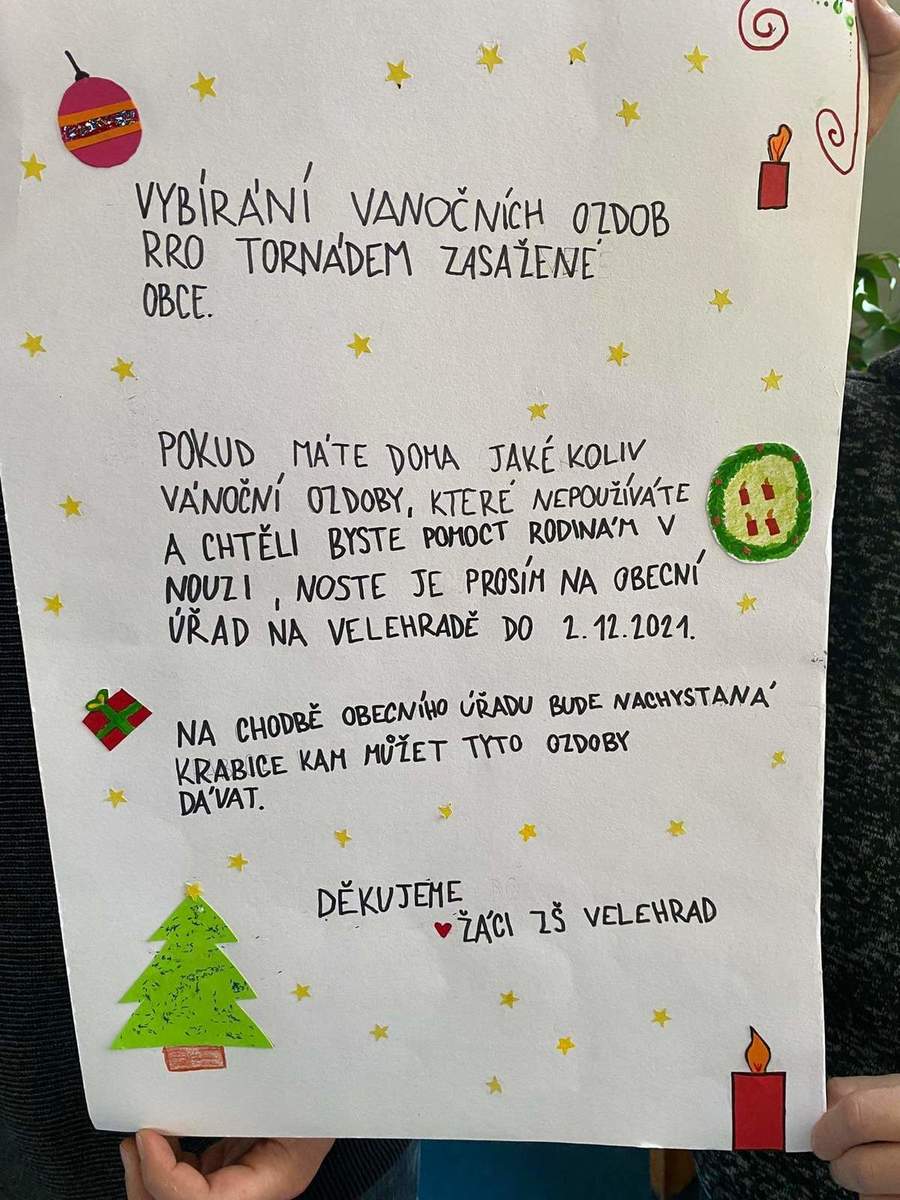 VYBÍRÁNÍ VANOČNÍCH OZDOB
RRO TORNÁDEM ZASAŽENÉ
OBCE.
POKUD MÁTE DOMA JAKÉ KOLIV
VÁNOČNÍ OZDOBY, KTERÉ NEPOUŽÍVÁTE
A CHTĚLI BYSTE POMOCT RODINÁM V
NOUZI, NOSTE JE PROSÍM NA OBECNÍ
ÚŘAD NA VELEHRADĚ DO 2.12.2021.
NA CHODBĚ OBECNÍHO ÚŘADU BUDE NACHYSTANÁ
KRABICE KAM MŮŽET TYTO OZDOBY
DÁVAT.
DĚKUJEME
ŽÁCI ZŠ VELEHRAD